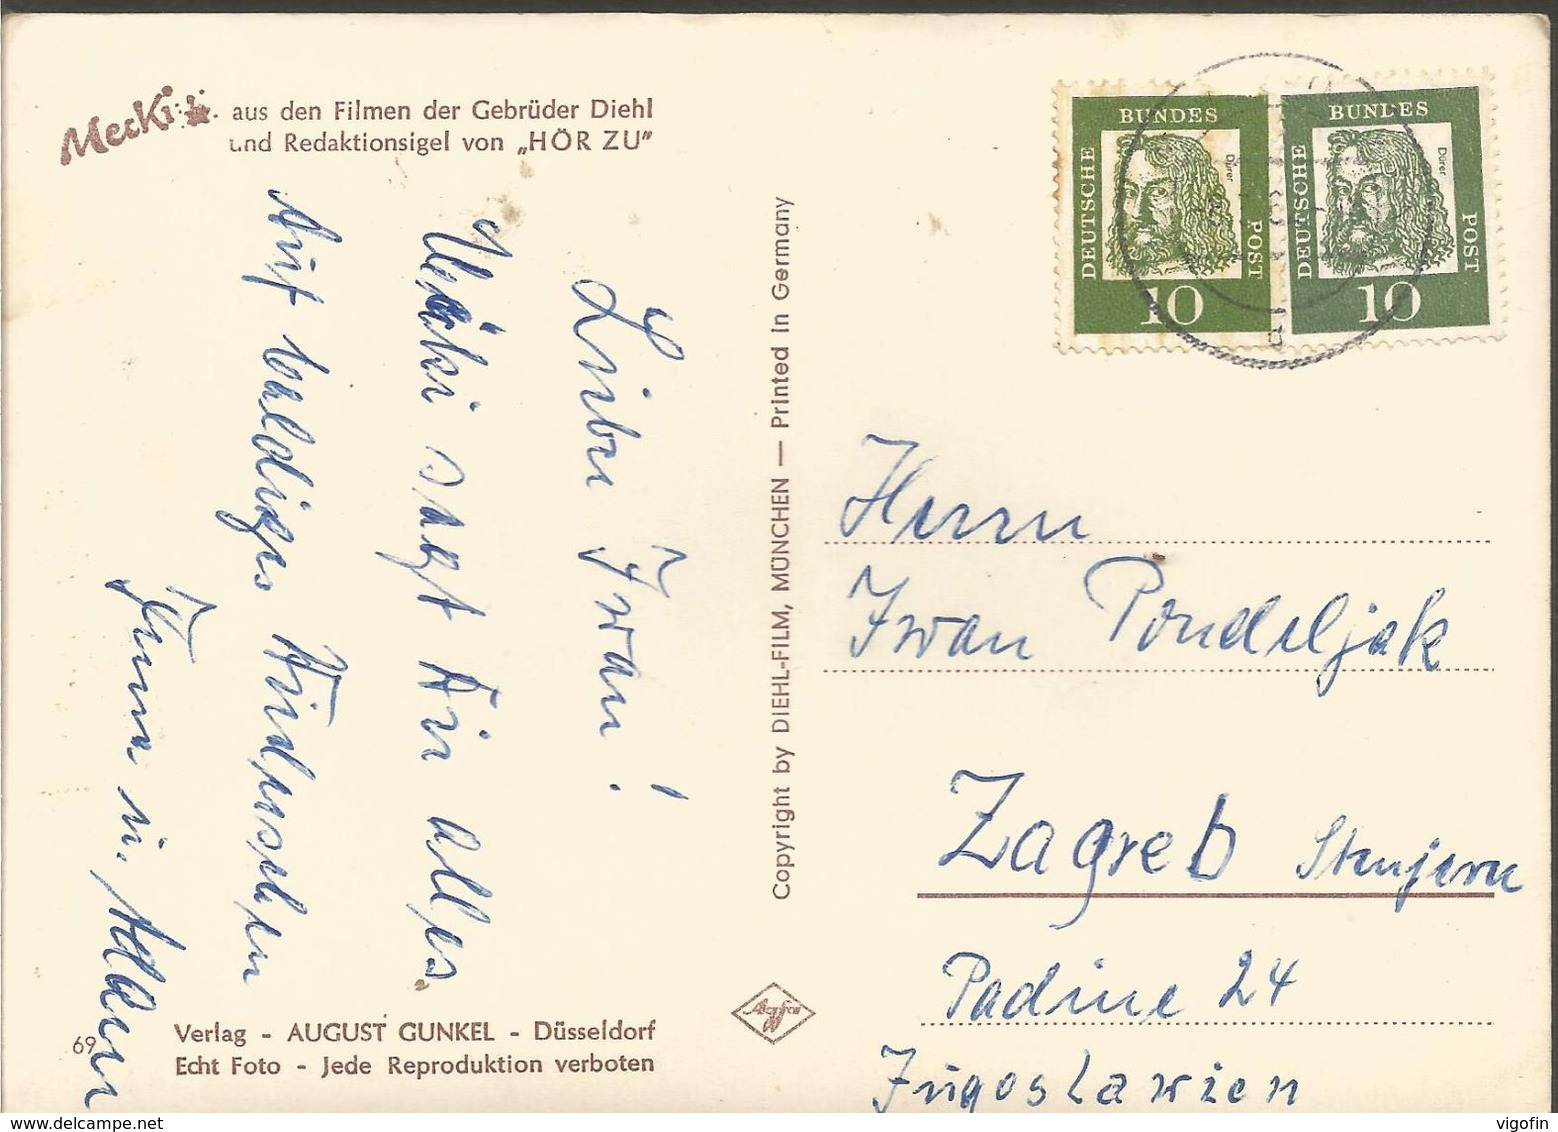 Mecki aus den Filmen der Gebrüder Diehl
und Redaktionsigel von „HÖR ZU"
Lieber Iwan!
Mecki sagt Dir alles
Auf baldiges Wiedersehen
Copyright by DIEHL-FILM, MÜNCHEN — Printed in Germany
69
Verlag - AUGUST GUNKEL - Düsseldorf
Echt Foto - Jede Reproduktion verboten
Agfa
DEUTSCHE BUNDES POST
Dürer
10
DEUTSCHE BUNDES POST
Dürer
10
Herrn
Iwan Pondeljak
Zagreb
Padine 24
Jugoslawien
www.delcampe.net
vigofin